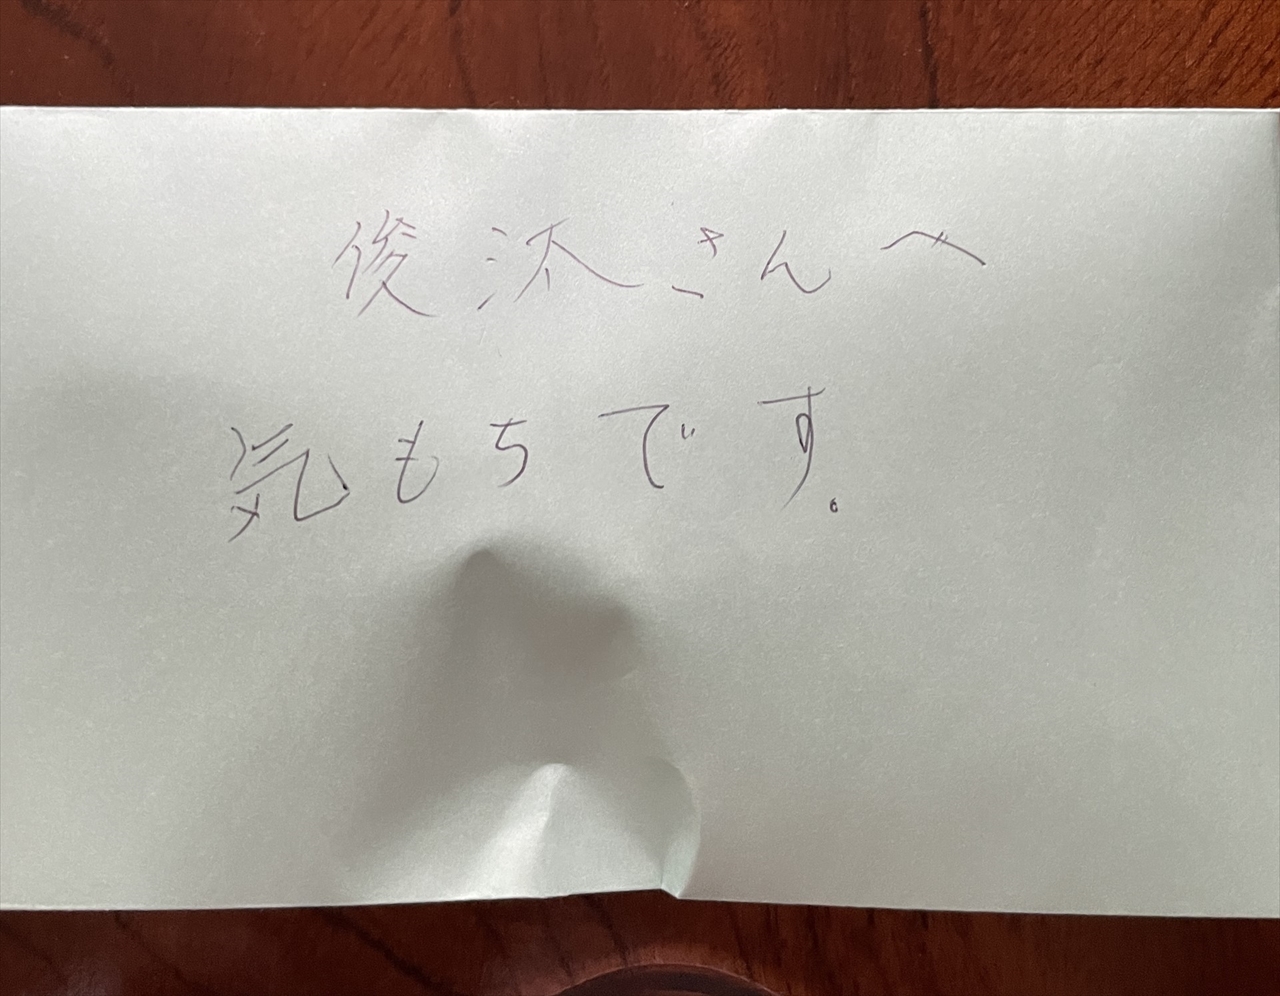 俊汰さんへ
気もちです。